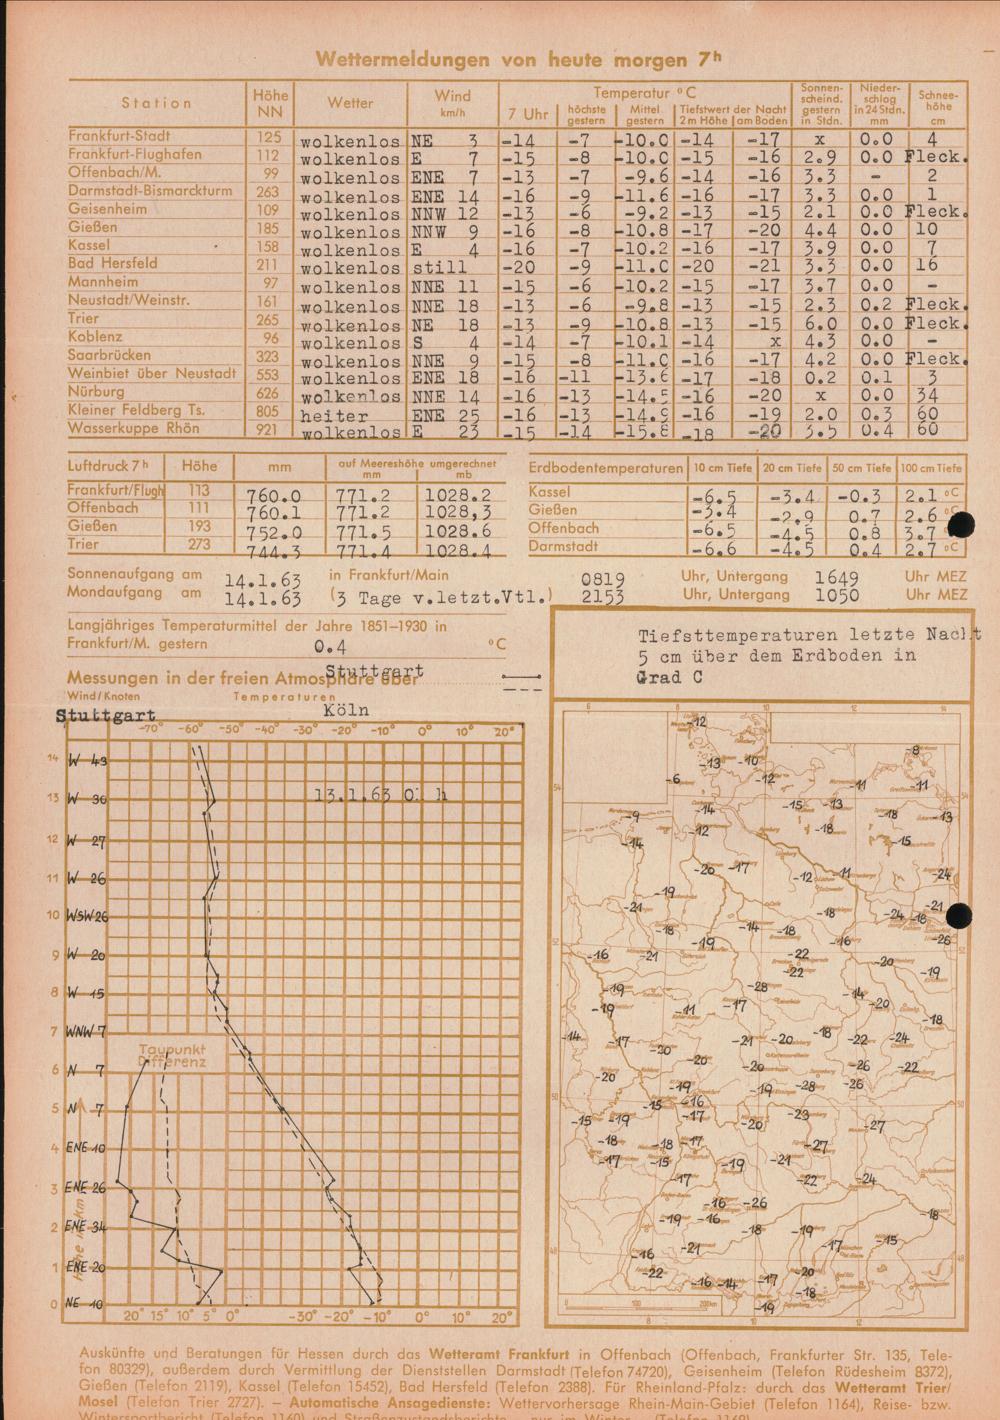 Wettermeldungen von heute morgen 7ʰ
Station Höhe NN Wetter Wind km/h Temperatur °C Sonnen-scheind. gestern in Stdn. Nieder-schlag in 24 Stdn. mm Schnee-höhe cm
7 Uhr höchste gestern Mittel gestern Tiefstwert der Nacht 2 m Höhe am Boden
Frankfurt-Stadt 125 wolkenlos NE 3 -14 -7 -10.0 -14 -17 x 0.0 4
Frankfurt-Flughafen 112 wolkenlos E 7 -15 -8 -10.0 -15 -16 2.9 0.0 Fleck.
Offenbach/M. 99 wolkenlos ENE 7 -13 -7 -9.6 -14 -16 3.3 - 2
Darmstadt-Bismarckturm 263 wolkenlos ENE 14 -16 -9 -11.6 -16 -17 3.3 0.0 1
Geisenheim 109 wolkenlos NNW 12 -13 -6 -9.2 -13 -15 2.1 0.0 Fleck.
Gießen 185 wolkenlos NNW 9 -16 -8 -10.8 -17 -20 4.4 0.0 10
Kassel 158 wolkenlos E 4 -16 -7 -10.2 -16 -17 3.9 0.0 7
Bad Hersfeld 211 wolkenlos still -20 -9 -11.0 -20 -21 3.3 0.0 16
Mannheim 97 wolkenlos NNE 11 -15 -6 -10.2 -15 -17 3.7 0.0 -
Neustadt/Weinstr. 161 wolkenlos NNE 18 -13 -6 -9.8 -13 -15 2.3 0.2 Fleck.
Trier 265 wolkenlos NE 18 -13 -9 -10.8 -13 -15 6.0 0.0 Fleck.
Koblenz 96 wolkenlos S 4 -14 -7 -10.1 -14 x 4.3 0.0 -
Saarbrücken 323 wolkenlos NNE 9 -15 -8 -11.0 -16 -17 4.2 0.0 Fleck.
Weinbiet über Neustadt 553 wolkenlos ENE 18 -16 -11 -13.6 -17 -18 0.2 0.1 3
Nürburg 626 wolkenlos NNE 14 -16 -13 -14.5 -16 -20 x 0.0 34
Kleiner Feldberg Ts. 805 heiter ENE 25 -16 -13 -14.9 -16 -19 2.0 0.3 60
Wasserkuppe Rhön 921 wolkenlos E 23 -15 -14 -15.8 -18 -20 3.5 0.4 60
Luftdruck 7ʰ Höhe mm auf Meereshöhe umgerechnet mm mb
Frankfurt/Flugh 113 760.0 771.2 1028.2
Offenbach 111 760.1 771.2 1028,3
Gießen 193 752.0 771.5 1028.6
Trier 273 744.3 771.4 1028.4
Erdbodentemperaturen 10 cm Tiefe 20 cm Tiefe 50 cm Tiefe 100 cm Tiefe
Kassel -6.5 -3.4 -0.3 2.1 °C
Gießen -3.4 -2.9 0.7 2.6 °C
Offenbach -6.5 -4.5 0.8 3.7
Darmstadt -6.6 -4.5 0.4 2.7 °C
Sonnenaufgang am 14.1.63 in Frankfurt/Main 0819 Uhr, Untergang 1649 Uhr MEZ
Mondaufgang am 14.1.63 (3 Tage v.letzt.Vtl.) 2153 Uhr, Untergang 1050 Uhr MEZ
Langjähriges Temperaturmittel der Jahre 1851–1930 in
Frankfurt/M. gestern 0.4 °C
Messungen in der freien Atmosphäre über Stuttgart
Wind/Knoten Temperaturen
Stuttgart Köln
-70° -60° -50° -40° -30° -20° -10° 0° 10° 20°
14 W 43
13 W 36 13.1.63 0 h
12 W 27
11 W 26
10 WSW 26
9 W 20
8 W 15
7 WNW 7
Taupunkt
Differenz
6 N 7
5 N 7
4 ENE 10
3 ENE 26
2 ENE 34
1 ENE 20
0 NE 10
Höhe in km
20° 15° 10° 5° 0° -30° -20° -10° 0° 10° 20°
Tiefsttemperaturen letzte Nacht
5 cm über dem Erdboden in
Grad C
8 10 12 14
-12
-8
-13 -10
-6 -12 -11 -11
-15 -13
-9 -14 -18 -13
-12 -18
-14 -15
-20 -17 -12 -11 -24
-19
-21 -18 -24 -18 -21
-18 -14 -18
-19 -16 -26
-16 -21 -22
-22 -20 -19
-19 -28 -14
-19 -11 -17 -20
-18
-14 -17 -21 -20 -18 -22 -24
-20 -20 -20 -26 -22
-20 -19 -19 -28 -26
-15 -16
-15 -19 -17 -20 -23 -27
-18 -18 -17 -27
-17 -15 -19 -21
-17 -22 -24
-16 -26
-19 -16 -18 -19 -18
-16 -21 -17 -15
-22 -16 -14 -17 -20
-18
-19
0 100 200km
8 10 12
Auskünfte und Beratungen für Hessen durch das Wetteramt Frankfurt in Offenbach (Offenbach, Frankfurter Str. 135, Tele-
fon 80329), außerdem durch Vermittlung der Dienststellen Darmstadt (Telefon 74720), Geisenheim (Telefon Rüdesheim 8372),
Gießen (Telefon 2119), Kassel (Telefon 15452), Bad Hersfeld (Telefon 2388). Für Rheinland-Pfalz: durch das Wetteramt Trier/
Mosel (Telefon Trier 2727). — Automatische Ansagedienste: Wettervorhersage Rhein-Main-Gebiet (Telefon 1164), Reise- bzw.
Wintersportbericht (Telefon 1160) und Straßenzustandsberichte – nur im Winter – (Telefon 1169).